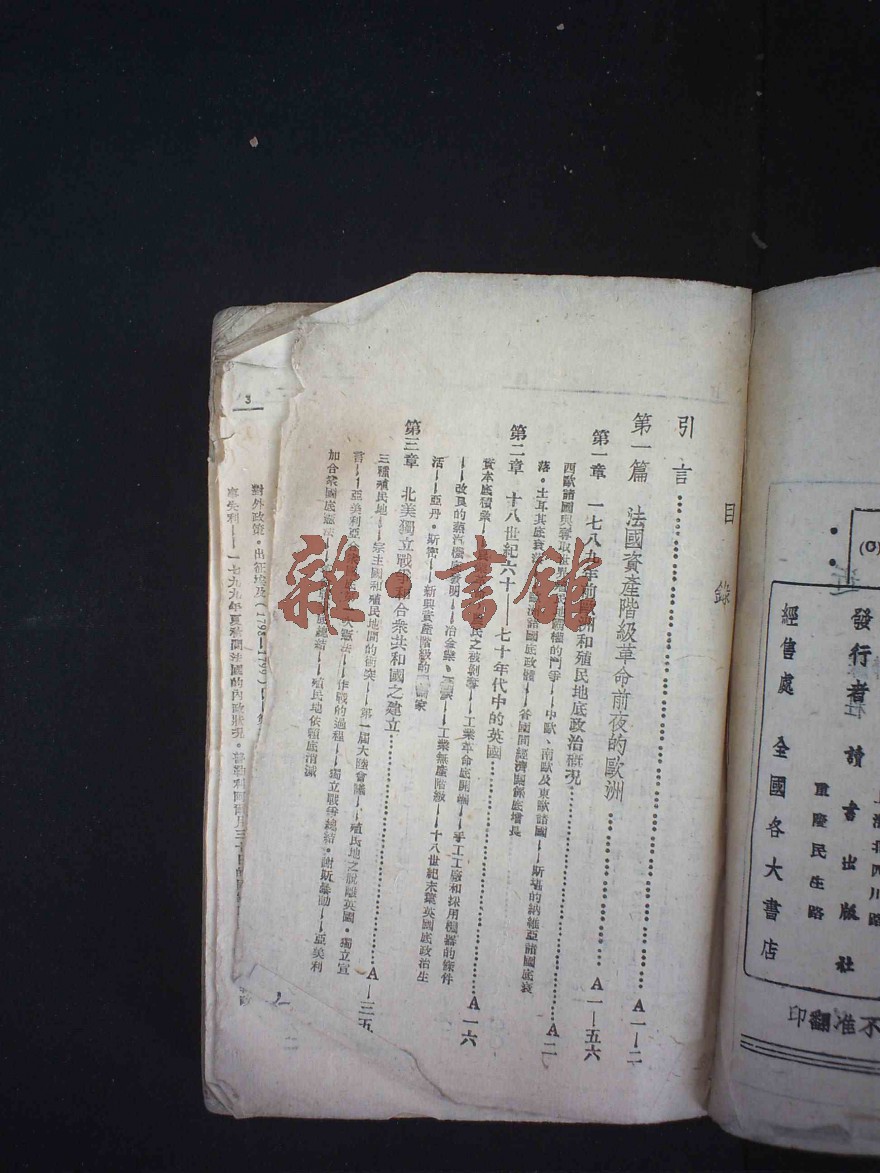 不准翻印
經售處 全國各大書店
發行者 讀書出版社
重慶民生路
北四川路
目錄
引言……A一—二
第一篇 法國資產階級革命前夜的歐洲……A一—五六
第一章 一七八九年前歐洲和殖民地底政治概況……A二
西歐諸國與奪取世界殖民地霸權的鬥爭——中歐、南歐及東歐諸國——斯堪的納維亞諸國底衰
落・土耳其底衰 諸國底政體——各國間經濟關係底增長
第二章 十八世紀六十——七十年代中的英國……A一六
資本底積纍—— 農民之被剝奪——工業革命底開端——手工工廠和採用機器的條件
——改良的蒸汽機底發明——冶金業 ——工業無產階級——十八世紀末葉英國底政治生
活——亞丹・斯密——新興資產階級的 家
第三章 北美獨立戰爭和合衆共和國之建立……A—三五
三種殖民地——宗主國和殖民地間的衝突——第一屆大陸會議——殖民地之脫離英國・獨立宣
言——亞美利亞合 憲法——作戰的過程——獨立戰爭總結・謝斯暴動——亞美利
加合衆國底憲法—— 底總結——殖民地依賴底消滅
3
對外政策・出征埃及(1798—1799)——第
一七九九年夏秋間法國的內政狀況・
雜・書館